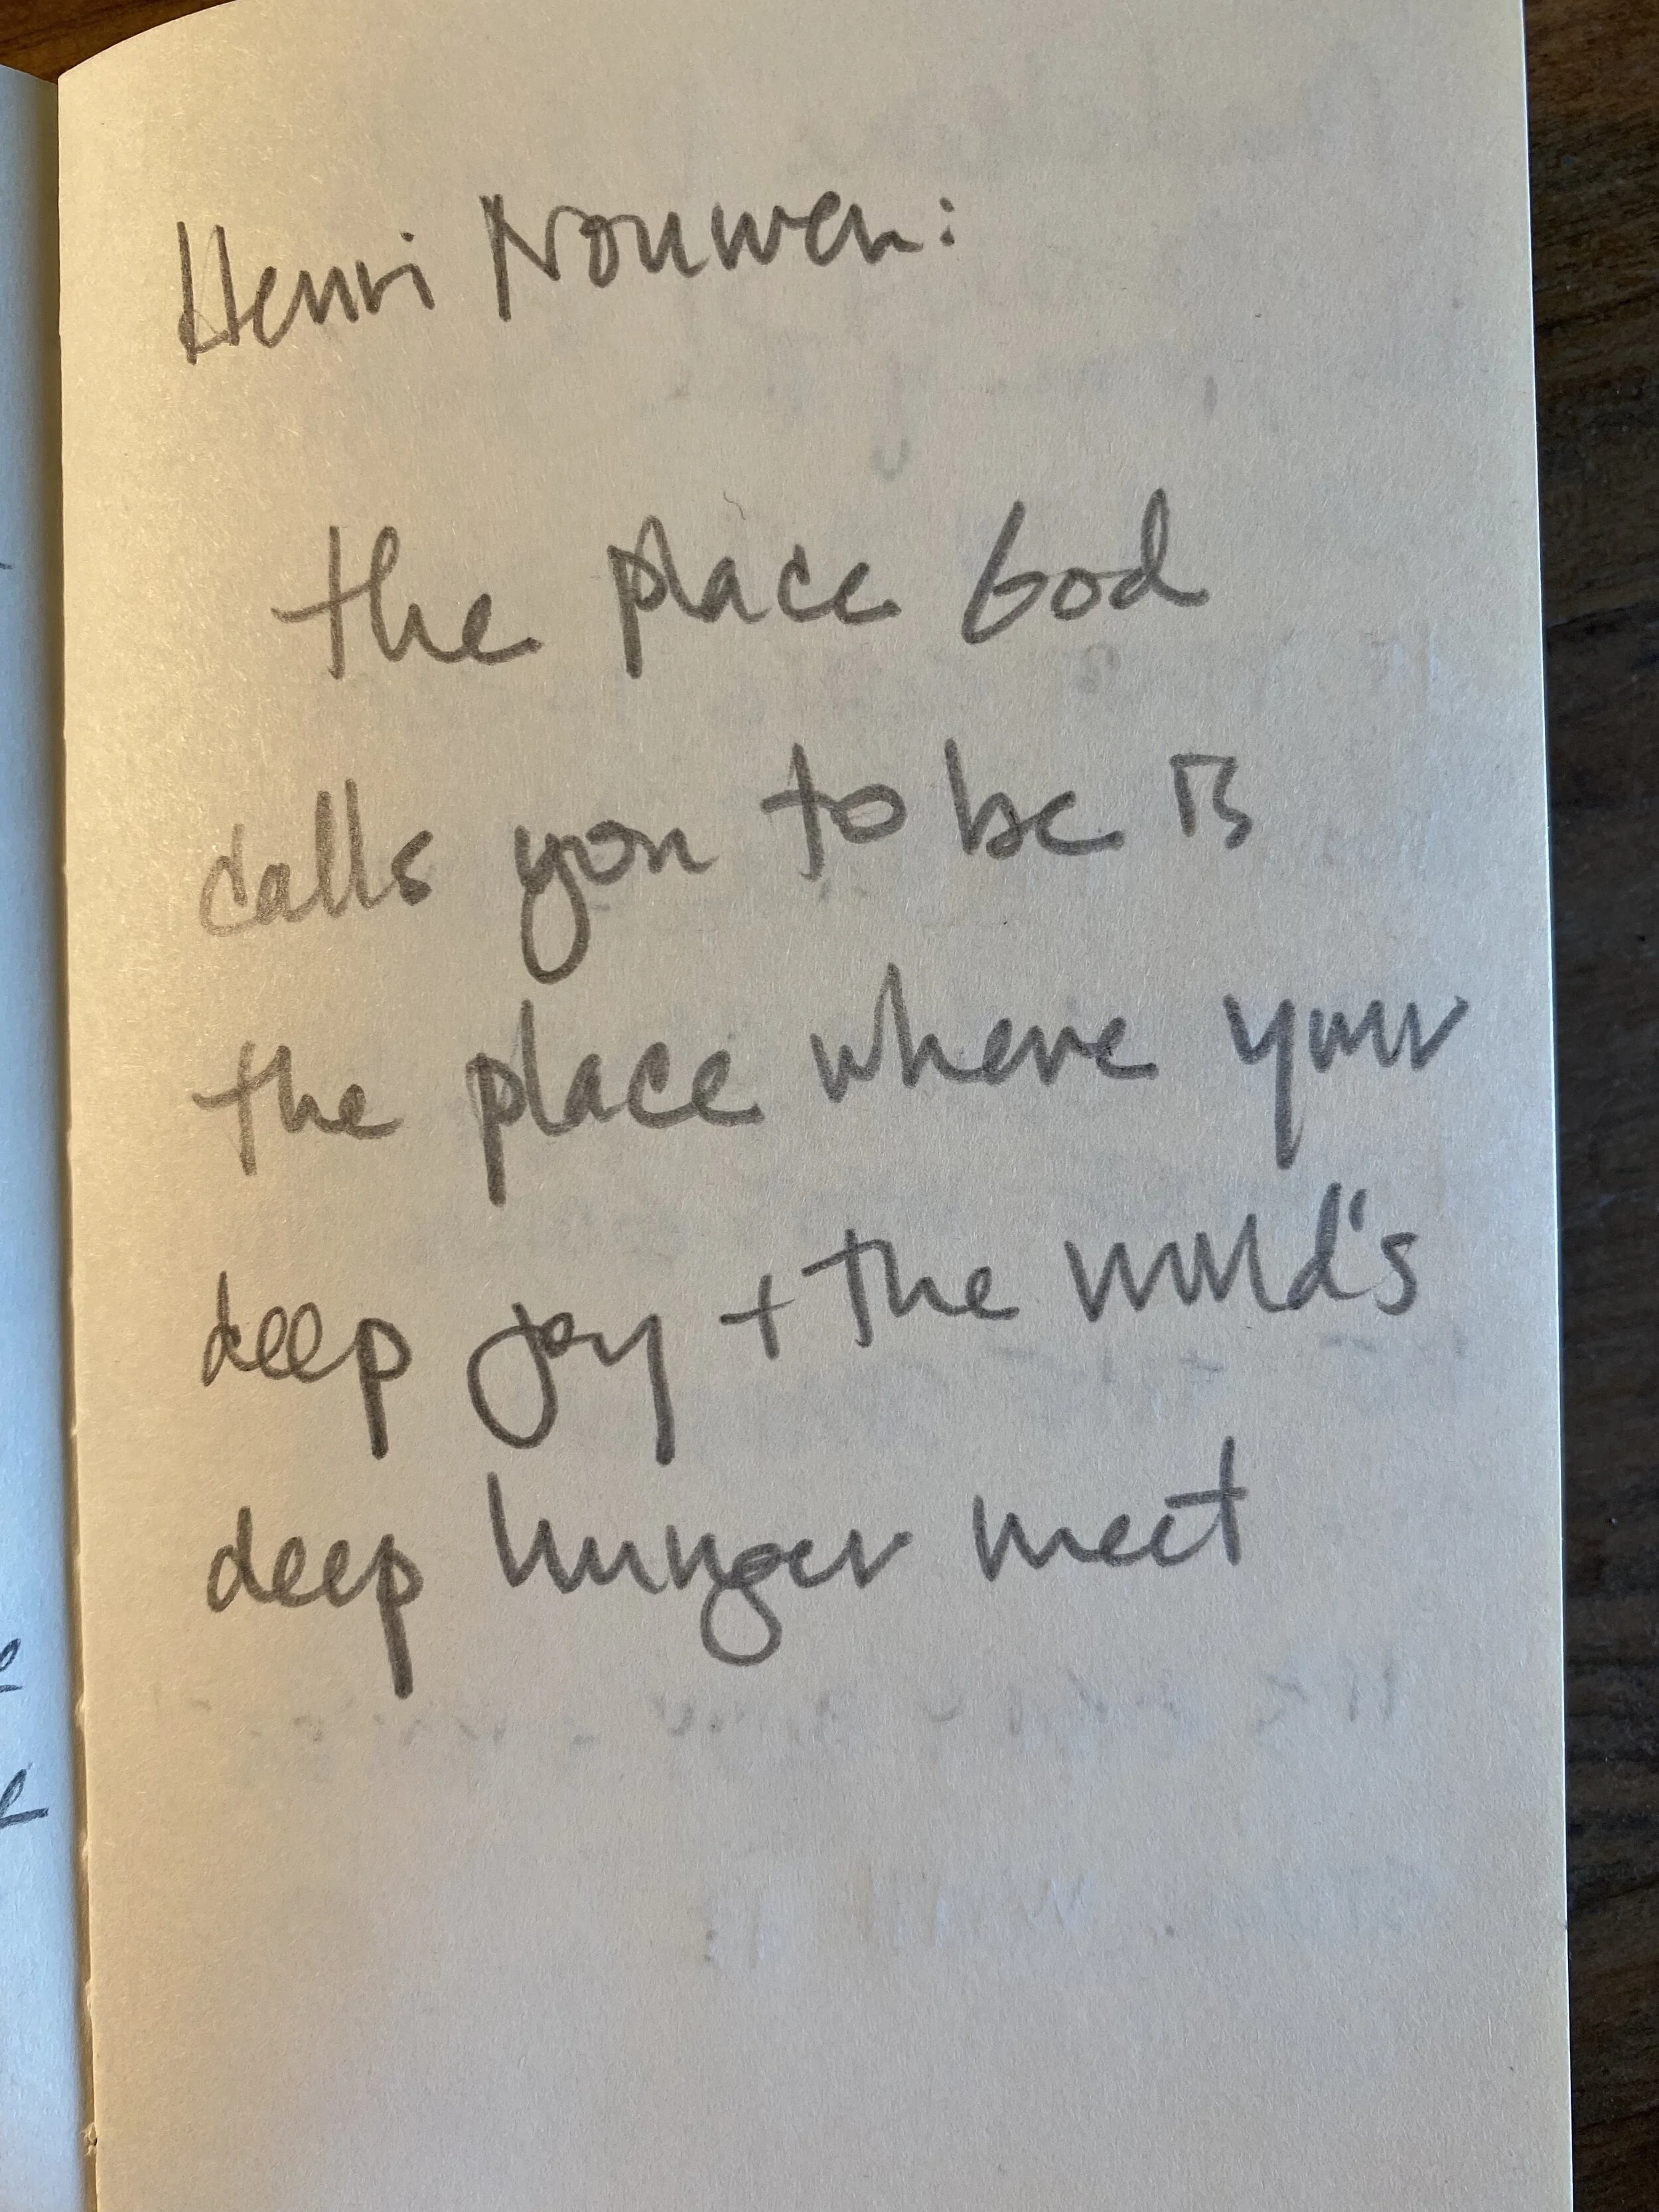 Henri Nouwen:
the place God
calls you to be is
the place where your
deep joy + the world's
deep hunger meet